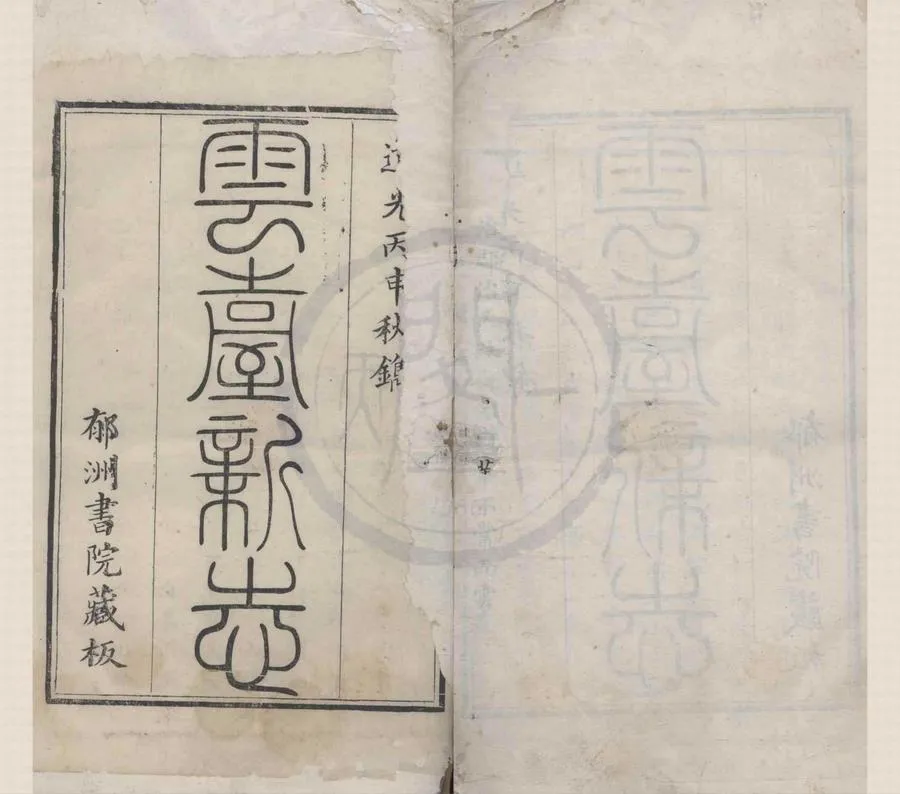 道光丙申秋鐫
雲臺新志
郁洲書院藏板